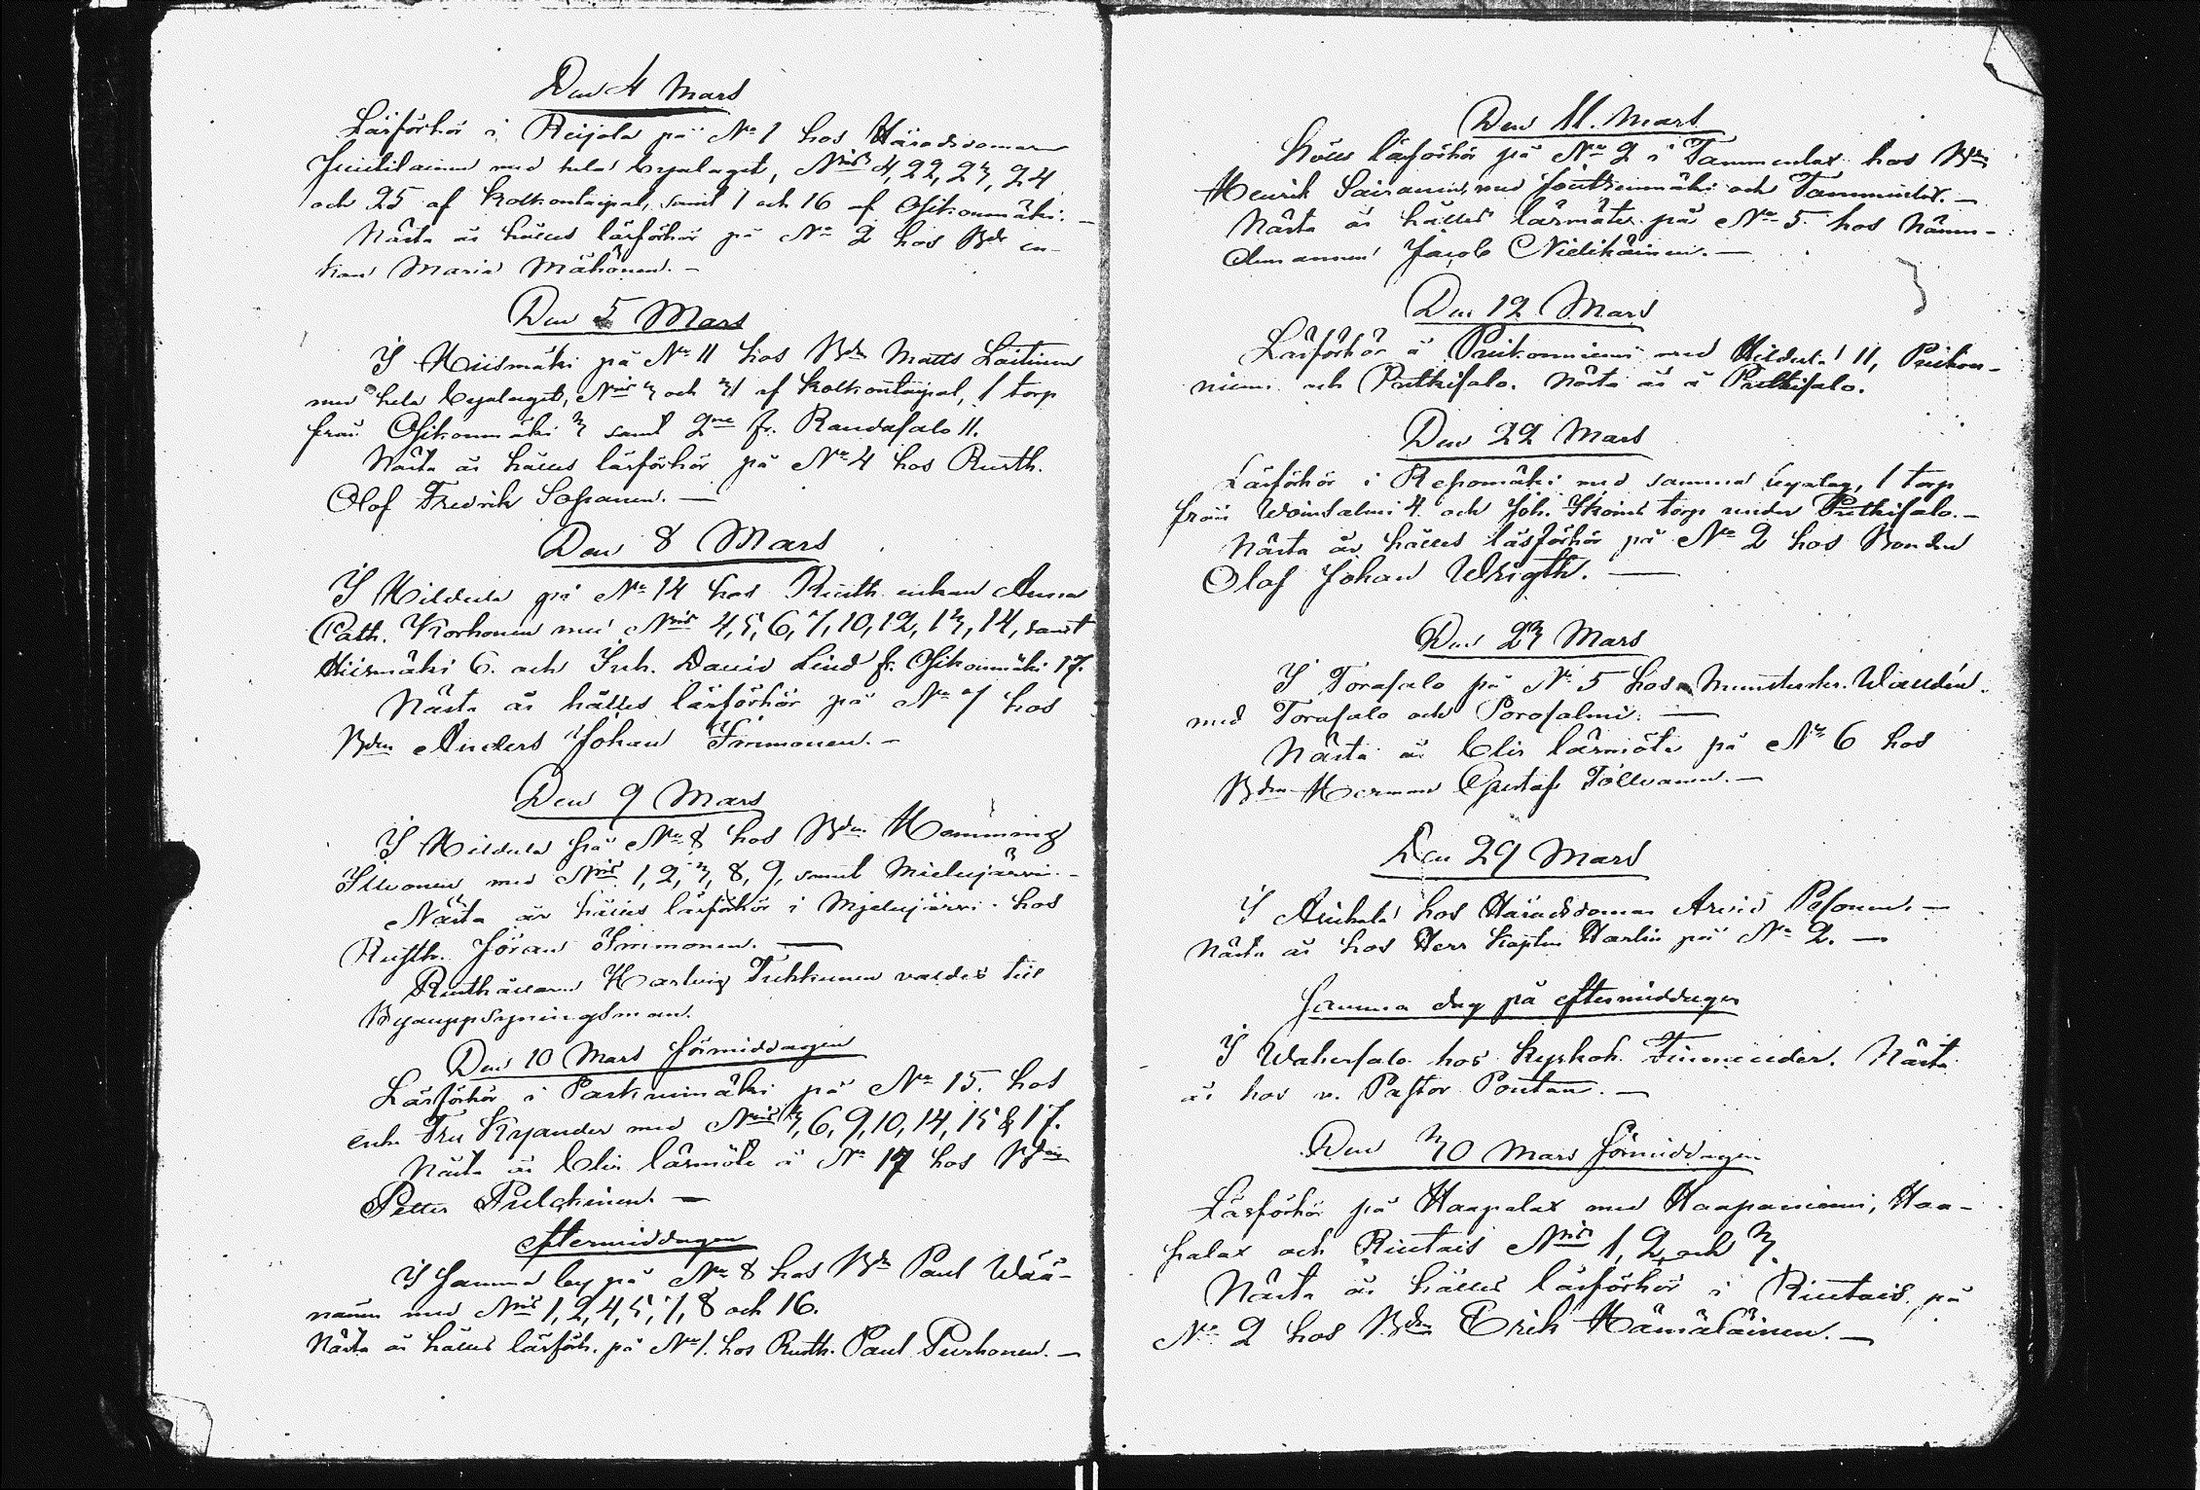 Den 4 Mars
Läsförhör i Reijola på No 1 hos Häradsdomaren
Juutilainen med hela byalaget, Nris 4, 22, 23, 24
och 25 af Kolkontaipal, samt 1 och 16 af Osikonmäki. —
Nästa år hålles läsförhör på No 2 hos Bde en-
kan Maria Mähönen. —
Den 5 Mars
I Hiismäki på No 11 hos Bdn Matts Laitinen
med hela byalaget, Nris 3 och 31 af Kolkontaipal, 1 torp
från Osikonmäki 3 samt 2ne fr. Randasalo 11.
Nästa år hålles läsförhör på No 4 hos Rusth.
Olof Fredrik Soganen. —
Den 8 Mars
I Hildula på No 14 hos Rusth. enkan Anna
Cath. Korhonen med Nris 4, 5, 6, 7, 10, 12, 13, 14, samt
Hiismäki 6. och Inh. David Lind fr. Osikonmäki 17.
Nästa år hålles läsförhör på No 7 hos
Bdn Anders Johan Immonen. —
Den 9 Mars
I Hildula på No 8 hos Bdn Hemming
Ilvonen med Nris 1, 2, 3, 8, 9, samt Mielujärvi. —
Nästa år hålles läsförhör i Mjelujärvi hos
Rusth. Jöran Immonen. —
Rusthållaren Hartvig Tukkunen valdes till
Byauppsyningsman.
Den 10 Mars förmiddagen
Läsförhör i Parkuinmäki på No 15. hos
enke Fru Kyander med Nris 3, 6, 9, 10, 14, 15 & 17.
Nästa år blir läsmöte å No 17 hos Bdn
Petter Pulckinen. —
eftermiddagen
I samma by på No 8 hos Bdn Paul Wää-
nänen med Nris 1, 2, 4, 5, 7, 8 och 16.
Nästa år hålles läsförh. på No 1. hos Rusth. Paul Purhonen. —
Den 11. Mars
hölls läsförhör på No 2 i Tammenlax hos Bdn
Henrik Sairanen, med Joutsenmäki och Tammenlax. —
Nästa år hålles läsmöte på No 5 hos Nämn-
demannen Jacob Nielikäinen. —
Den 12 Mars
Läsförhör å Pirikonniemi med Hildula 11, Pirikon-
niemi och Putkisalo. Nästa år å Putkisalo.
Den 22 Mars
Läsförhör i Repomäki med samma byalag, 1 torp
från Woinsalmi 4. och Joh. Ikoins torp under Putkisalo. —
Nästa år hålles läsförhör på No 2 hos Bonden
Olof Johan Wrigth. —
Den 23 Mars
I Torasalo på No 5 hos Munsterskr. Wallden
med Torasalo och Porosalmi. —
Nästa år blir läsmöte på No 6 hos
Bdn Herman Gustaf Tollvanen. —
Den 29 Mars
I Asikala hos Häradsdomar Arvid Pesonen. —
Nästa år hos Herr Kapten Harlin på No 2. —
Samma dag på eftermiddagen
I Wahersalo hos Kyrkoh. Finnander. Nästa
år hos v. Pastor Pontan. —
Den 30 Mars förmiddagen
Läsförhör på Haapalax med Haapaniemi, Haa-
palax och Rintais Nris 1, 2 och 3.
Nästa år hålles läsförhör i Rintais på
No 2 hos Bdn Erik Hämäläinen. —